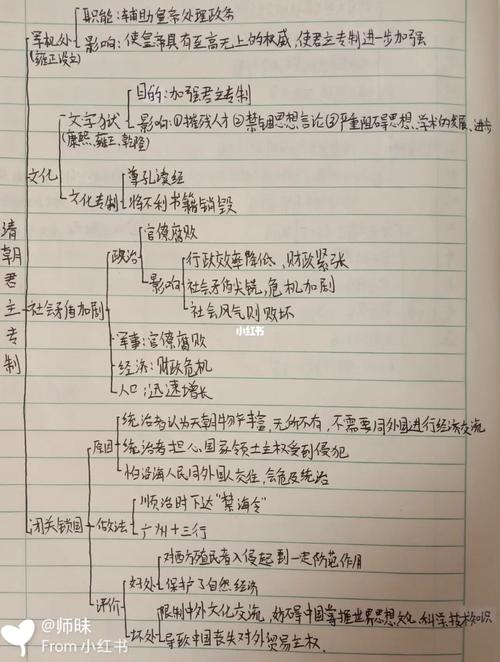 职能:辅助皇帝处理政务
军机处
(雍正设立)
影响:使皇帝具有至高无上的权威,使君主专制进一步加强
目的:加强君主专制
文字狱
(康熙、雍正、乾隆)
影响:①摧残人才②禁锢思想言论③严重阻碍思想、学术的发展、进步
文化
尊孔读经
文化专制
将不利书籍销毁
清朝君主专制
官僚腐败
政治
行政效率降低,财政紧张
影响
社会矛盾尖锐,危机加剧
社会风气则败坏
社会矛盾加剧
小红书
军事:官僚腐败
经济:财政危机
人口:迅速增长
统治者认为天朝物产丰富,无所不有,不需要同外国进行经济交流
原因
统治者担心国家领土主权受到侵犯
怕沿海人民同外国人交往,会危及统治
顺治时下达“禁海令”
闭关锁国
做法
广州十三行
对西方殖民者入侵起到一定防范作用
好处
保护了自然经济
评价
限制中外文化交流,妨碍中国掌握世界思想文化、科学技术知识
坏处
导致中国丧失对外贸易主权.
@师昧
From 小红书